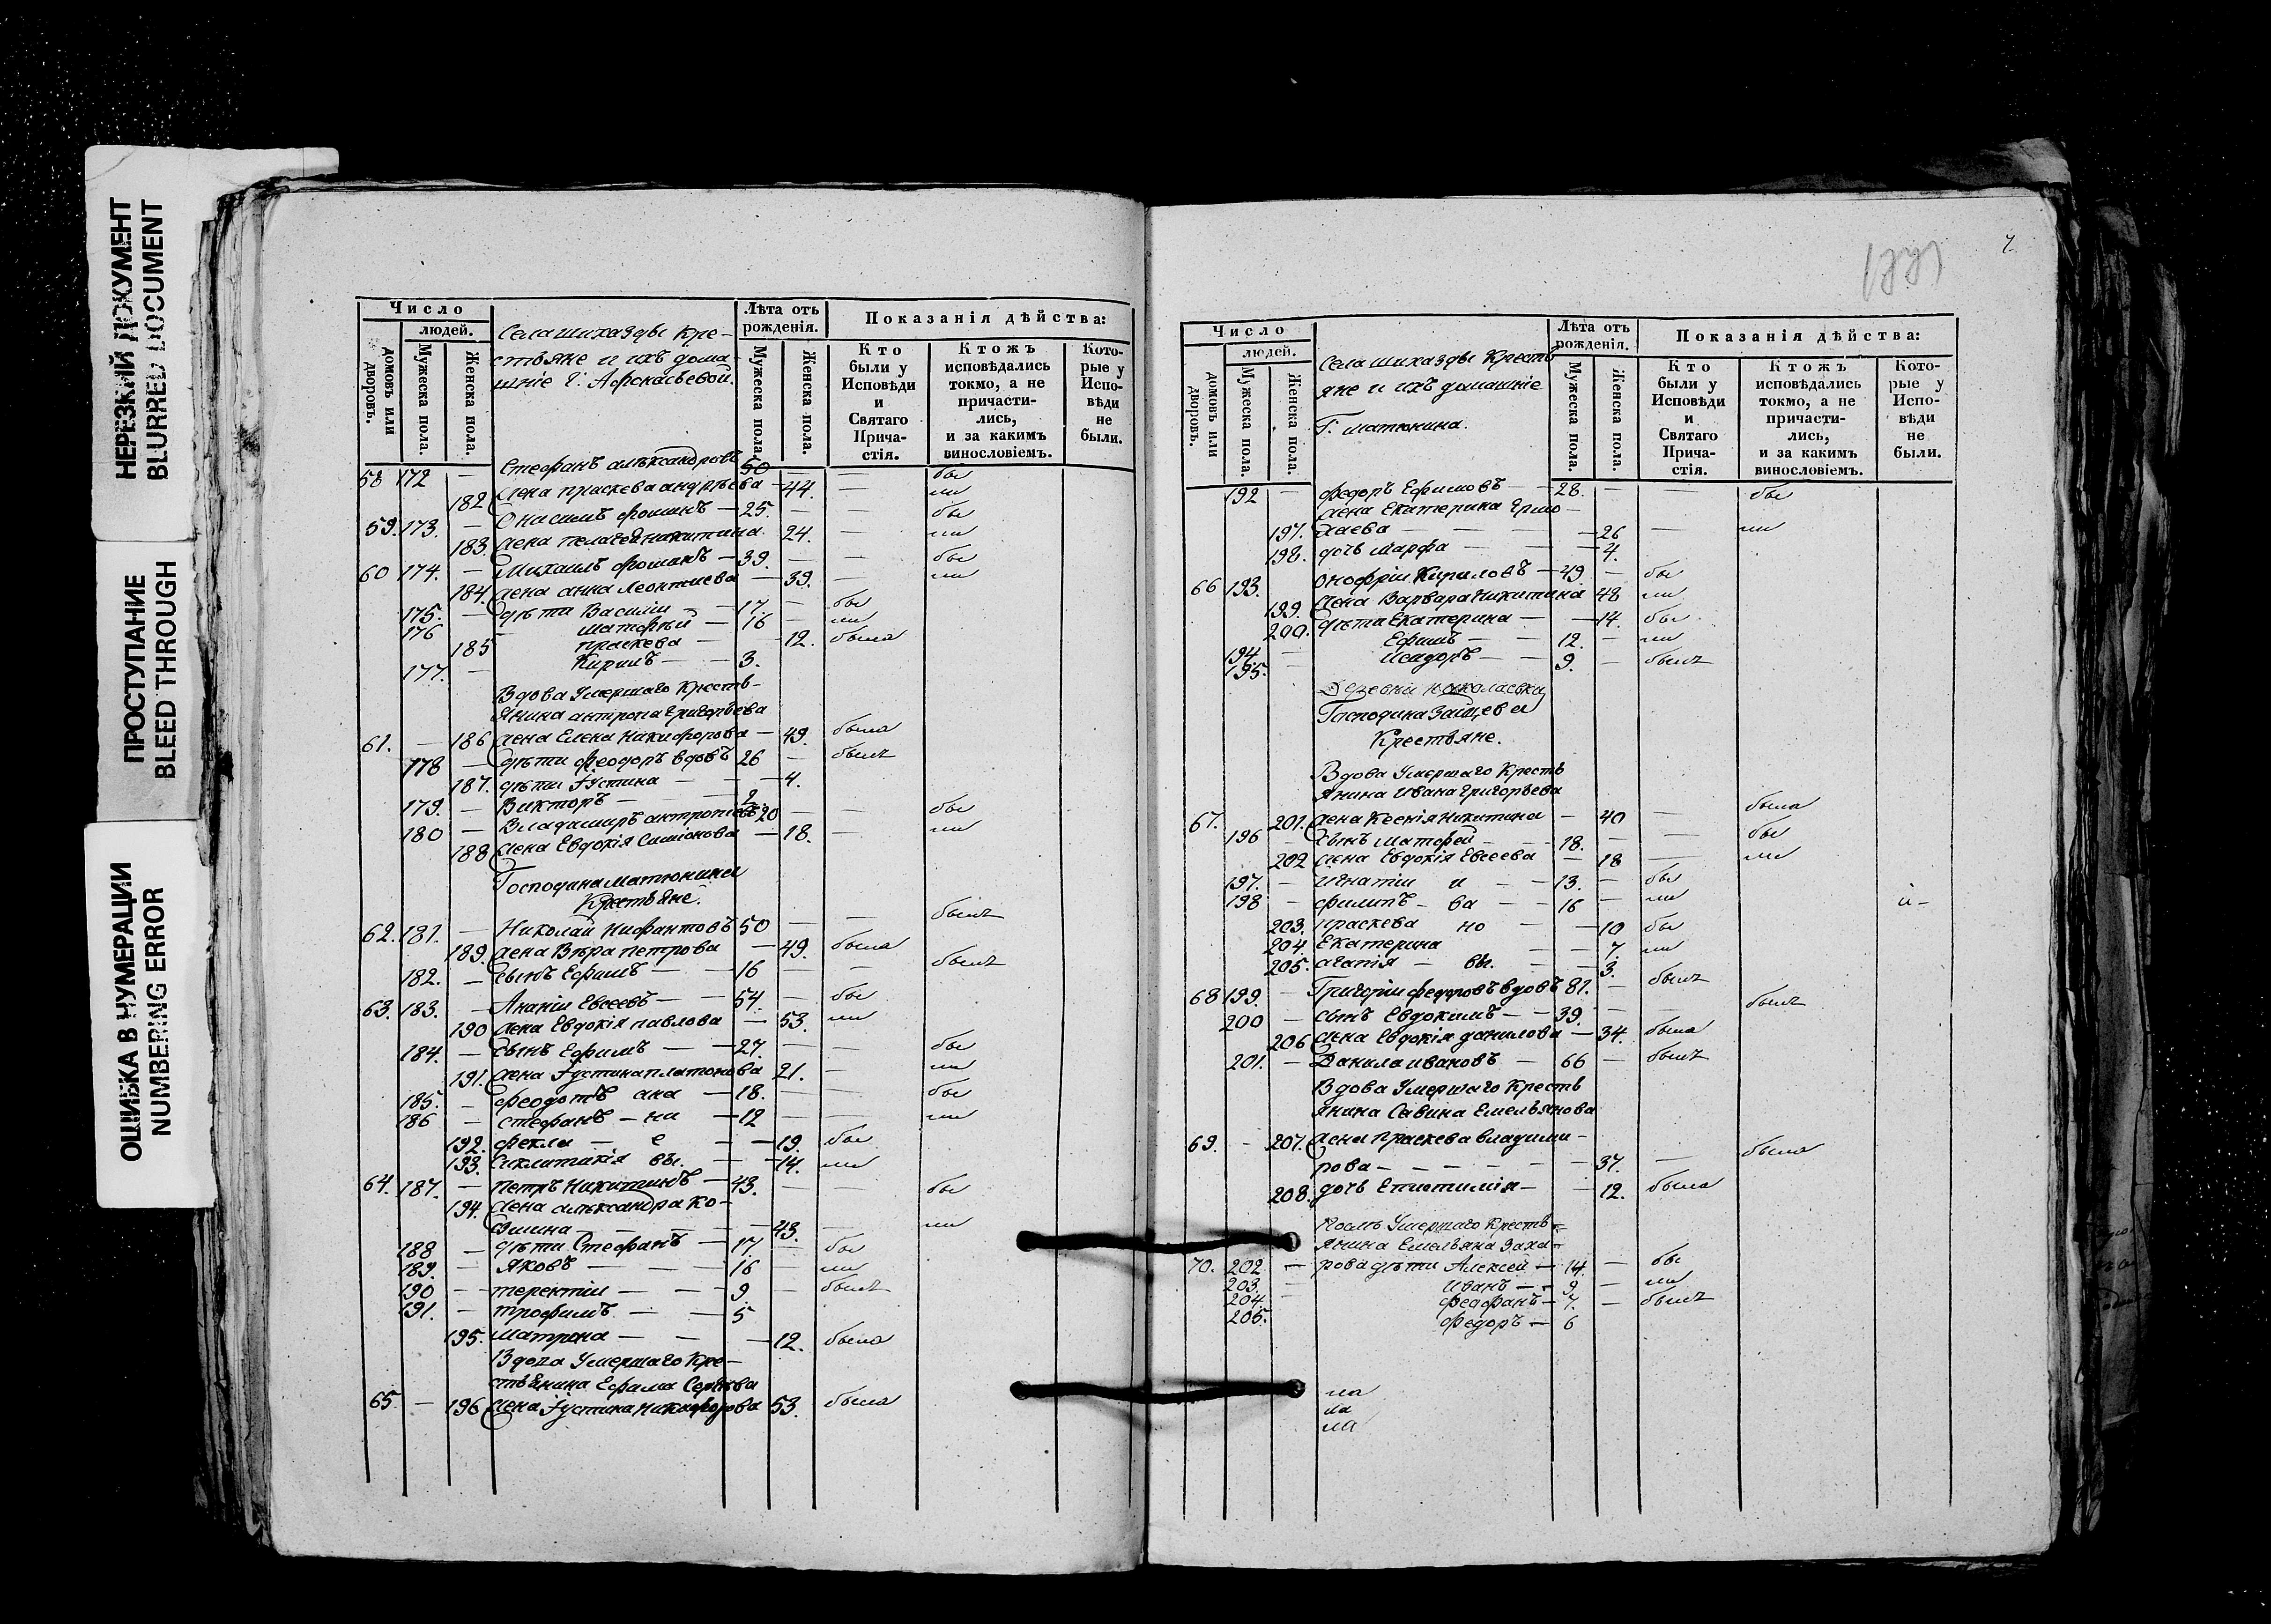 НЕРЕЗКИЙ ДОКУМЕНТ
BLURRED DOCUMENT
ПРОСТУПАНИЕ
BLEED THROUGH
ОШИБКА В НУМЕРАЦИИ
NUMBERING ERROR
Число
людей.
домовъ или дворовъ.
Мужеска пола.
Женска пола.
Села Шихазды Кре-
стьяне и ихъ дома-
шніе Г: Афонасьевой.
Лѣта отъ рожденія.
Мужеска пола.
Женска пола.
Показанія дѣйства:
Кто были у Исповѣди и Святаго Прича-стія.
Ктожъ исповѣдались токмо, а не причасти-лись, и за какимъ винословіемъ.
Кото-рые у Испо-вѣди не были.
58 172 — Стефанъ алѣксандровъ 50 — — бы
182 жена праскева андрѣева — 44. — ли
59. 173. — Онисимъ фоминъ — 25. — — бы
183. жена пелагея никитина 24. — ли
60 174. — Михаилъ фоминъ — 39. — — бы
184. жена анна Леонтиева — 39. — ли
175. — дѣти Василіи — 17. — бы
176 — матфѣй — 16 — ли
185 праскева — — 12. была
177. — Кирилъ — — 3.
Вдова Умершаго Кресть-
янина антропа Григорьева
61. — 186 жена Елена Никифорова — 49. была
178 — дѣти феодоръ вдовъ 26 — былъ
187. дѣти Іустина — — 4.
179. — Викторъ — — 2.
180 — Владимиръ антроповъ 20 — — бы
188 жена Евдокія Симіонова — 18. — ли
Господина матюнина
Крестьяне.
62. 181. — Николай Нифантовъ 50 — — былъ
189. жена Вѣра петрова — 49. была
182. — сынъ Ефимъ — — 16 — — былъ
63. 183. — Ананіи Евсеевъ — — 54. — бы
190 жена Евдокія павлова — 53. ли
184. — Сынъ Ефимъ — — 27. — — бы
191. жена Іустина платонова 21. — ли
185. — феодотъ ана — 18. — — бы
186 — стефанъ — ни — 12 — — ли
192. фекла — е — — 19. бы
193. вы. — — 14. ли
64. 187. — петръ Никитинъ — 43. — — бы
194. жена алѣксандра Ко-
змина — — — — 43. — ли
188 — дѣти Стефанъ — 17. — бы
189. — Яковъ — — — 16 — ли
190 — терентіи — — 9 — былъ
191. — трофимъ — — 5
195. матрона — — — 12. была
Вдова Умершаго Кре-
стьянина Ефима
65. — 196 жена Іустина Никифорова 53. была
7
Число
людей.
домовъ или дворовъ.
Мужеска пола.
Женска пола.
Села шихазды Кресть
яне и ихъ домашніе
Г: матюнина.
Лѣта отъ рожденія.
Мужеска пола.
Женска пола.
Показанія дѣйства:
Кто были у Исповѣди и Святаго Прича-стія.
Ктожъ исповѣдались токмо, а не причасти-лись, и за какимъ винословіемъ.
Кото-рые у Испо-вѣди не были.
192 — федоръ Ефимовъ — 28. — — бы
жена Екатерина Ермо-
197. лаева — — — 26 — ли
198. дочь марфа — — — 4.
66 193. онофріи Кириловъ — 49. — бы
199. жена Варвара Никитина 48 ли
200. дѣти Екатерина — — 14. бы
194. — Ефимъ — — 12. — ли
195. — Исидоръ — — 9. — былъ
Деревни Николаевки
Господина Зайцева
Крестьяне.
Вдова Умершаго Кресть
янина ивана григорьева
67. 201. жена Ксенія Никитина — 40 — была
196 — сынъ матфей — — 18. — — бы
202 жена Евдокія Евсеева — 18 — ли
197. — игнатіи и — — 13. — бы
198 — филипъ — ва — — 16 — ли й-
203. праскева но — — 10 бы
204. Екатерина — — 7. ли
205. агапія — вы. — — 3.
68 199. — Григоріи федоровъ вдовъ 81. — былъ
200 — сынъ Евдокимъ — — 39. — — былъ
206 жена Евдокія данилова — 34. была
201. — Данила ивановъ — 66 — былъ
Вдова Умершаго Кресть
янина Савина Емельянова
69. — 207. жена праскева владими-
рова — — — — — 37. — была
208. дочь Епистимія — — 12. была
Умершаго Кресть-
янина Емельяна Заха-
70. 202. — рова дѣти Алексѣй — 14. — бы
203. — иванъ — 9 — ли
204. — феофанъ — 7. — былъ
205. федоръ — 6
ла
ла
ла